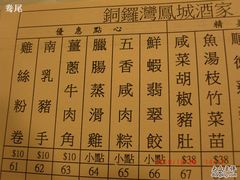 鸢尾
銅鑼灣鳳城酒家
優惠點心
精
雞絲粉卷
$10
61
南乳豬手
$10
62
薑蔥牛肉角
$10
63
臘腸蒸滑雞
小點
64
五香咸肉粽
小點
65
鮮蝦翡翠餃
小點
66
咸菜胡椒豬肚
$38
67
魚湯枝竹菜苗
$38